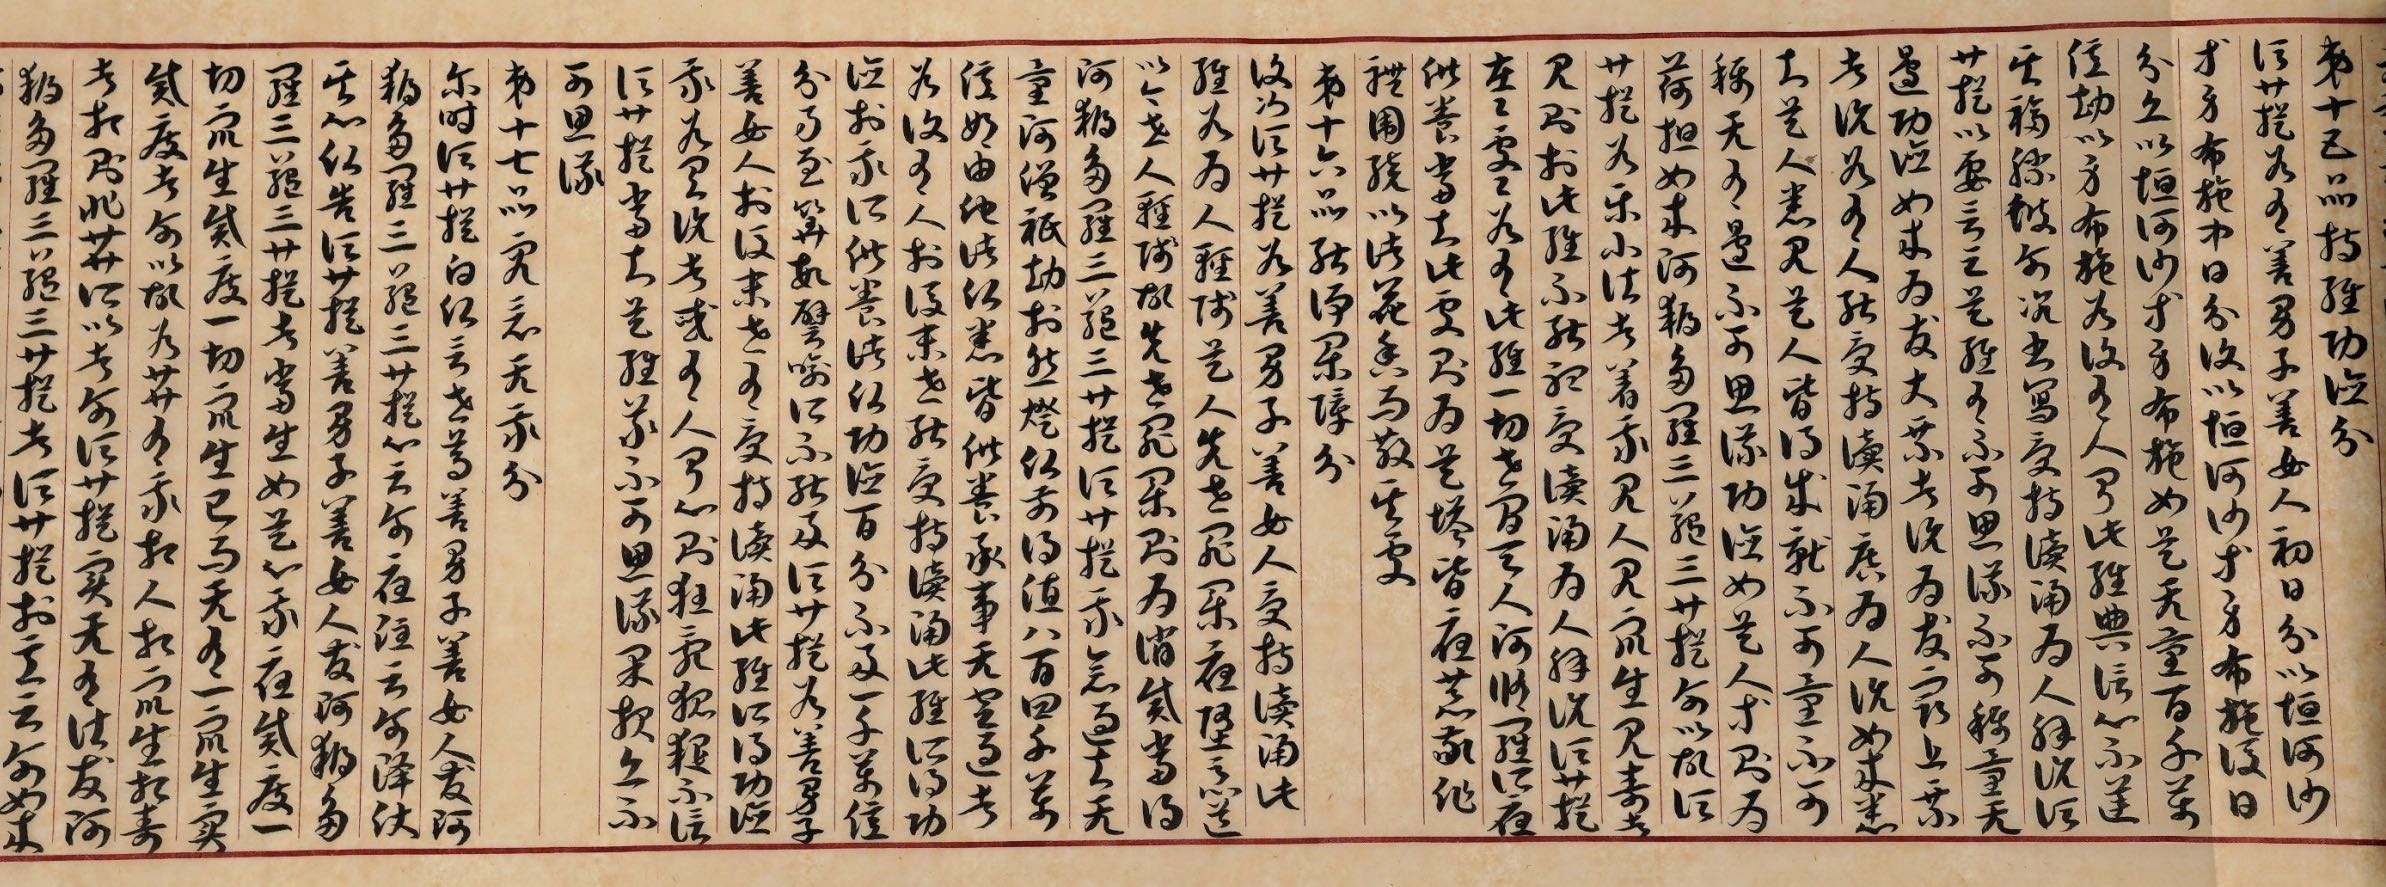 第十五品持經功德分
須菩提若有善男子善女人初日分以恒河沙
等身布施中日分復以恒河沙等身布施後日
分亦以恒河沙等身布施如是无量百千萬
億劫以身布施若復有人聞此經典信心不逆
其福勝彼何況書寫受持讀誦為人解說須
菩提以要言之是經有不可思議不可稱量无
邊功德如來為發大乘者說為發最上乘
者說若有人能受持讀誦廣為人說如來悉
知是人悉見是人皆得成就不可量不可
稱无有邊不可思議功德如是人等則為
荷担如來阿耨多羅三藐三菩提何以故須
菩提若樂小法者著我見人見眾生見壽者
見則於此經不能聽受讀誦為人解說須菩提
在在處處若有此經一切世間天人阿修羅所應
供養當知此處則為是塔皆應恭敬作
禮圍繞以諸花香而散其處
第十六品能淨業障分
復次須菩提若善男子善女人受持讀誦此
經若為人輕賤是人先世罪業應墮惡道
以今世人輕賤故先世罪業則為消滅當得
阿耨多羅三藐三菩提須菩提我念過去无
量阿僧祇劫於然燈佛前得值八百四千萬
億那由他諸佛悉皆供養承事无空過者
若復有人於後末世能受持讀誦此經所得功
德於我所供養諸佛功德百分不及一千萬億
分乃至筭數譬喻所不能及須菩提若善男子
善女人於後末世有受持讀誦此經所得功德
我若具說者或有人聞心則狂亂狐疑不信
須菩提當知是經義不可思議果報亦不
可思議
第十七品究竟无我分
尔時須菩提白佛言世尊善男子善女人發阿
耨多羅三藐三菩提心云何應住云何降伏
其心佛告須菩提善男子善女人發阿耨多
羅三藐三菩提者當生如是心我應滅度一
切眾生滅度一切眾生已而无有一眾生實
滅度者何以故若菩薩有我相人相眾生相壽
者相則非菩薩所以者何須菩提實无有法發阿
耨多羅三藐三菩提者須菩提於意云何如來